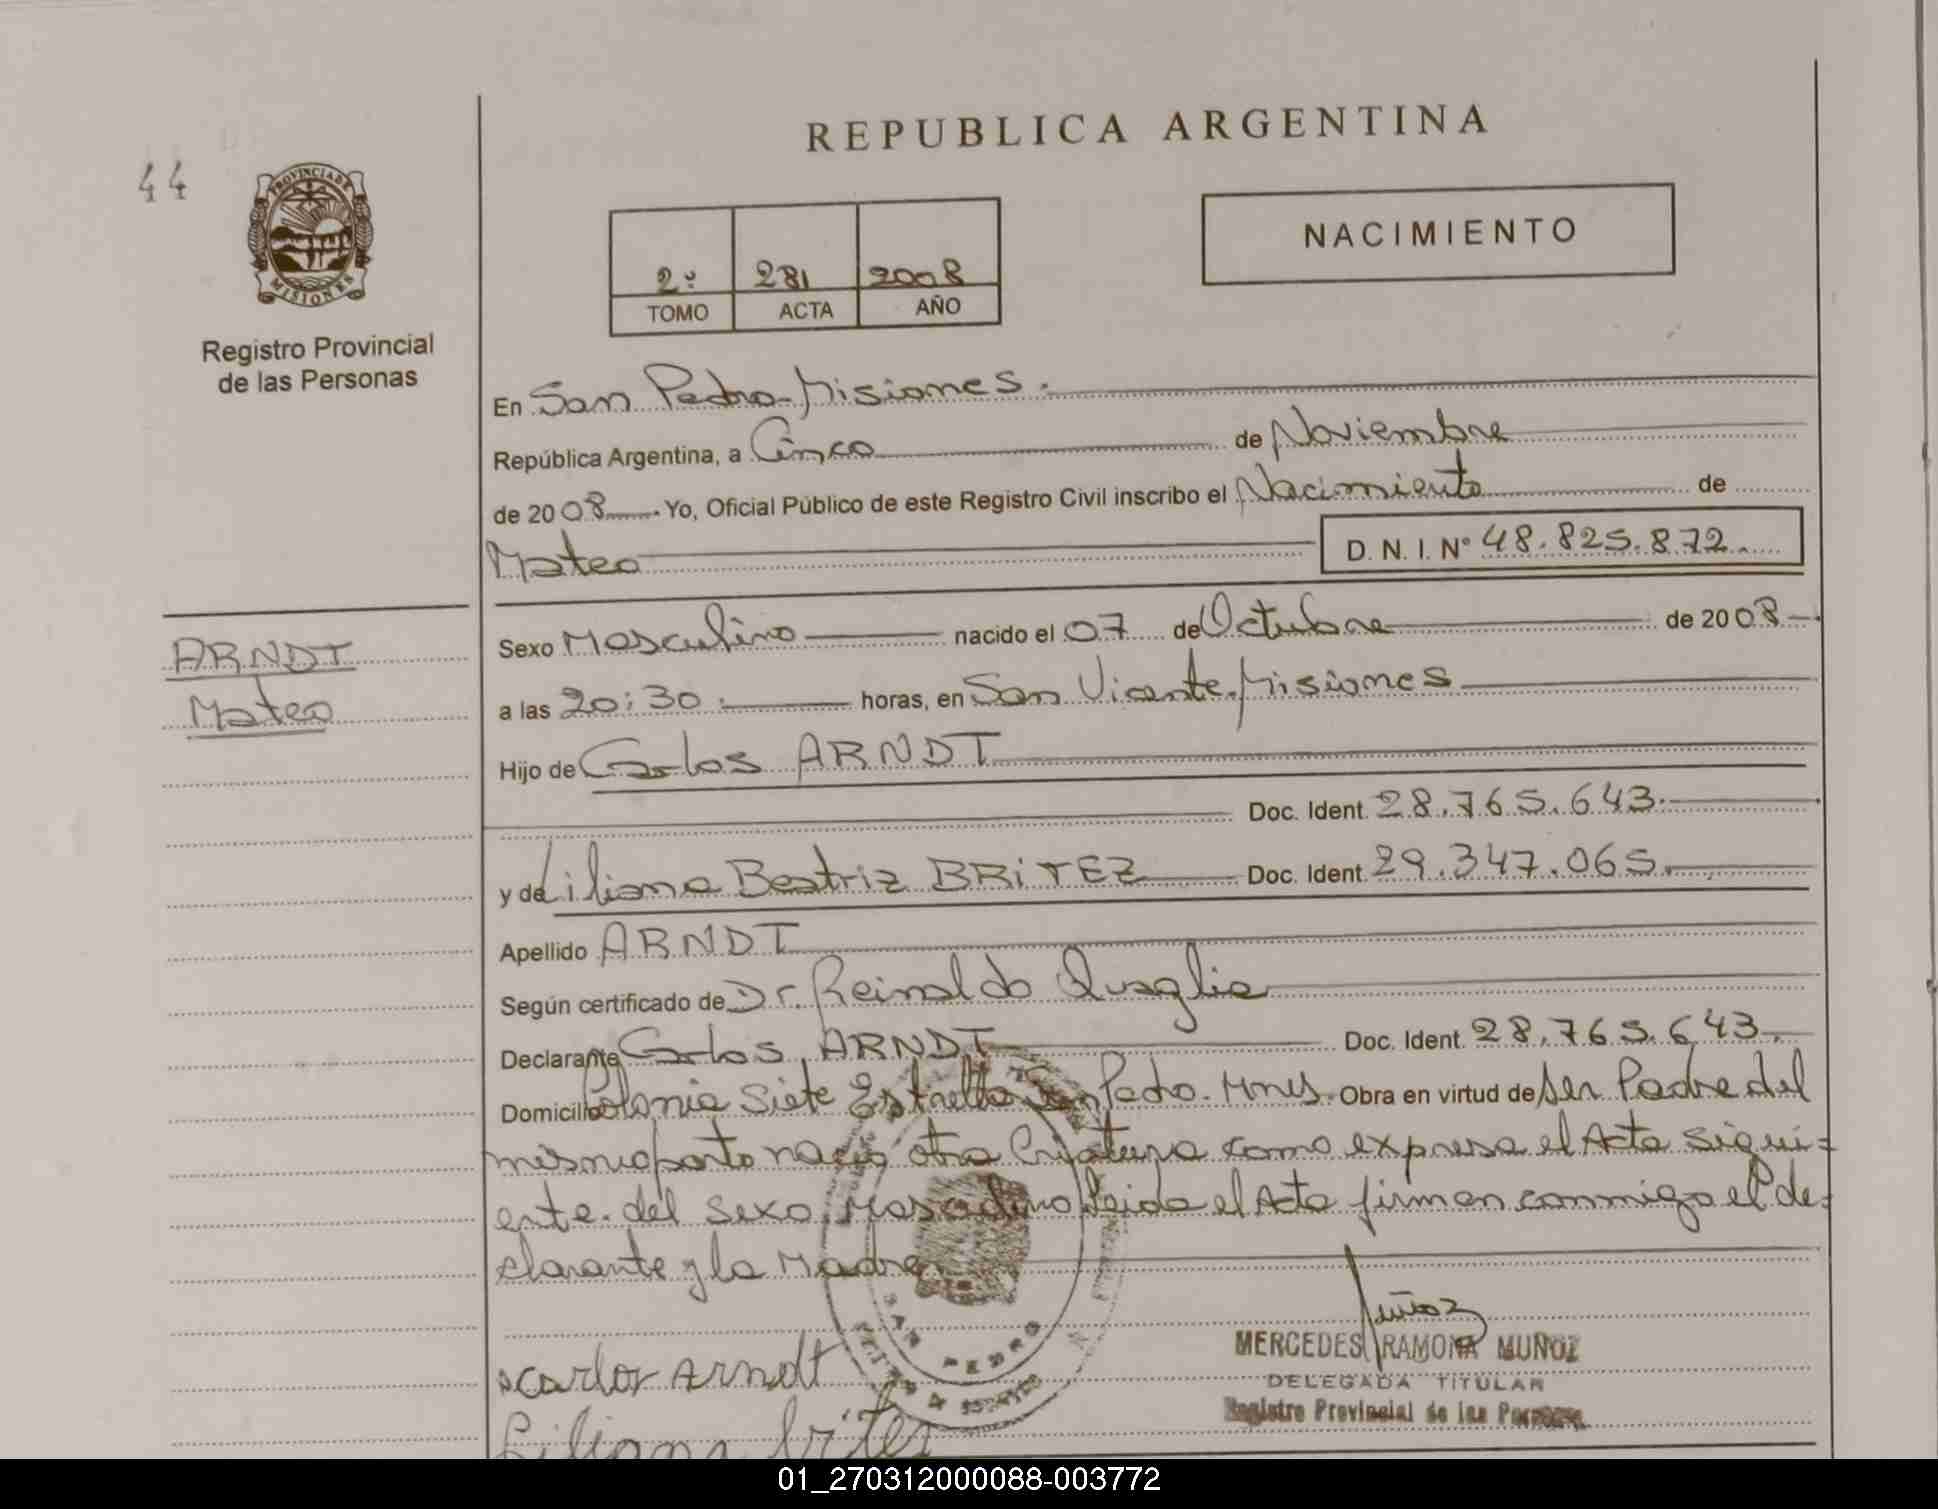 REPUBLICA ARGENTINA
44
PROVINCIA DE
MISIONES
Registro Provincial
de las Personas
2º 281 2008
TOMO ACTA AÑO
NACIMIENTO
En San Pedro-Misiones.
República Argentina, a Cinco de Noviembre
de 2008 . Yo, Oficial Público de este Registro Civil inscribo el Nacimiento de
Mateo D. N. I. N° 48.825.872.
ARNDT
Mateo
Sexo Masculino nacido el 07 de Octubre de 2008
a las 20:30 horas, en San Vicente-Misiones
Hijo de Carlos ARNDT
Doc. Ident. 28.765.643.
y de Liliana Beatriz BRITEZ Doc. Ident. 29.347.065.
Apellido ARNDT
Según certificado de Dr. Reinaldo Quaglia
Declarante Carlos ARNDT Doc. Ident. 28.765.643.
Domicilio Colonia Siete Estrellas San Pedro. Mnes. Obra en virtud de ser Padre del
mismo parto nació otra Criatura como expresa el Acta sigui-
ente. del sexo Masculino leida el Acta firman conmigo el de-
clarante y la Madre
SAN PEDRO
Muñoz
MERCEDES RAMONA MUÑOZ
DELEGADA TITULAR
Registro Provincial de las Personas
Carlos Arndt
Liliana Britez
01_270312000088-003772